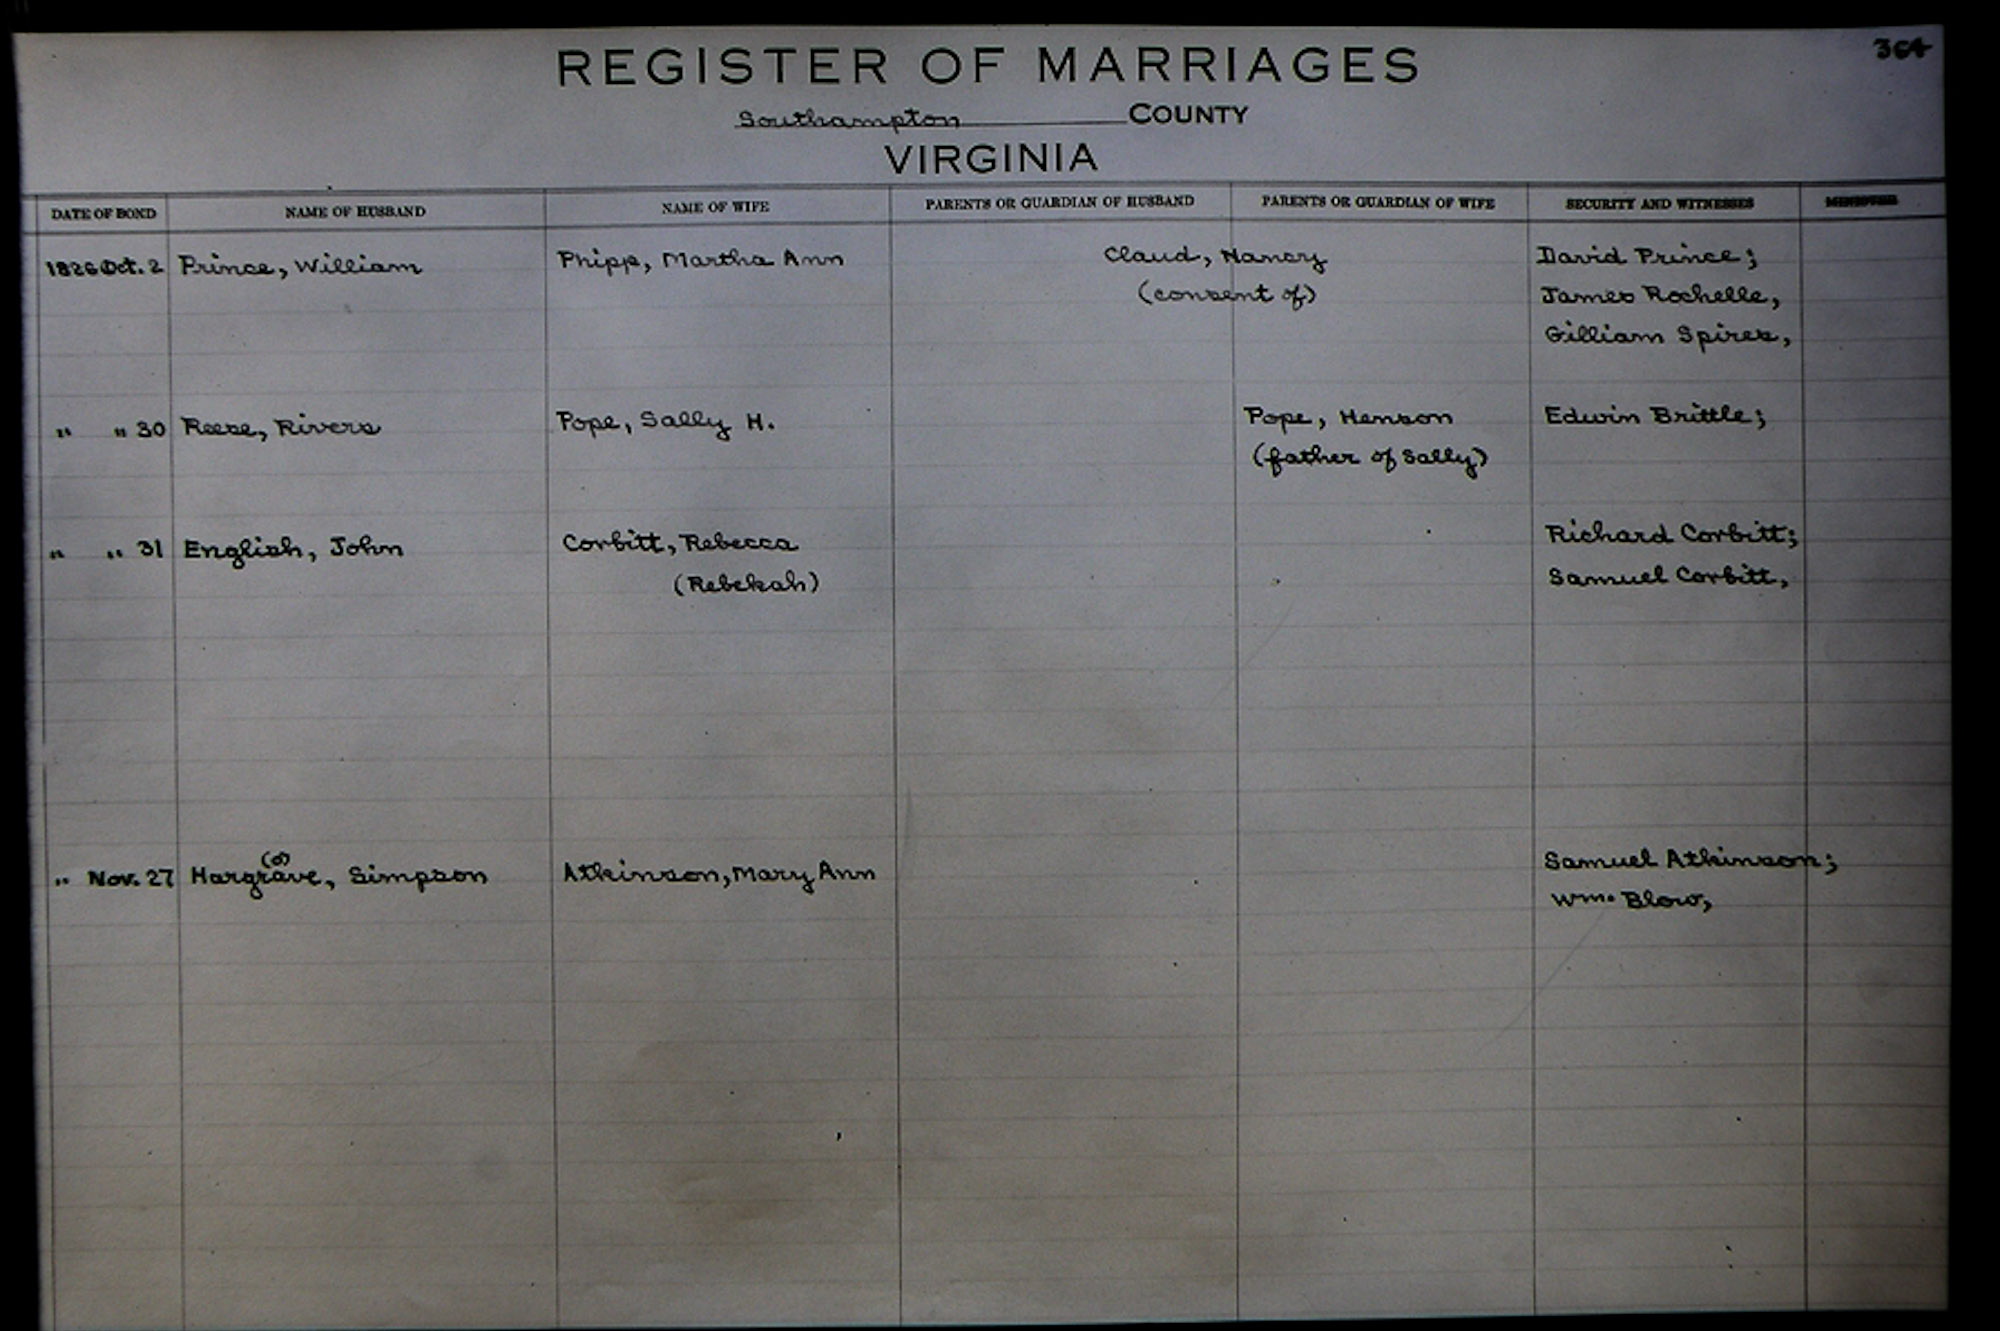 364
REGISTER OF MARRIAGES
Southampton COUNTY
VIRGINIA
DATE OF BOND NAME OF HUSBAND NAME OF WIFE PARENTS OR GUARDIAN OF HUSBAND PARENTS OR GUARDIAN OF WIFE SECURITY AND WITNESSES MINISTER
1826 Oct. 2 Prince, William Phipp, Martha Ann Claud, Nancy David Prince;
(consent of) James Rochelle,
Gilliam Spires,
" " 30 Reese, Rivers Pope, Sally H. Pope, Henson Edwin Brittle;
(father of Sally)
" " 31 English, John Corbitt, Rebecca Richard Corbitt;
(Rebekah) Samuel Corbitt,
(o)
" Nov. 27 Hargrave, Simpson Atkinson, Mary Ann Samuel Atkinson;
Wm. Blow,